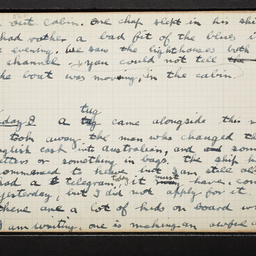 out cabin. One chap slept in his shi
had rather a bad fit of the blues i
evening. We saw the lighthouses both
channel & you could not tell the
the boat was moving, in the cabin.
day 8 A tug came alongside this m
took away the man who changed th
nglish cash into Australian, and some
etters or something in bags. The ship h
commenced to heave but I am still all
had a telegram, it must have com
yesterday, but I did not apply for it
there are a lot of kids on board w
I am writing. One is making an awful